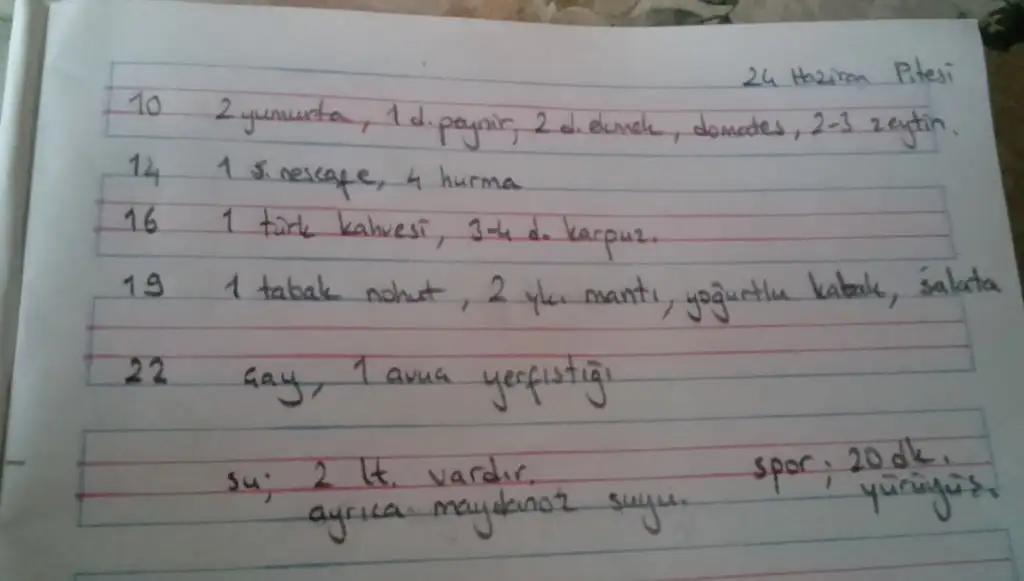 24 Haziran Pitesi
10 2 yumurta, 1 d. peynir, 2 d. ekmek, domates, 2-3 zeytin.
14 1 s. nescafe, 4 hurma
16 1 türk kahvesi, 3-4 d. karpuz.
19 1 tabak nohut, 2 yk. mantı, yoğurtlu kabak, salata
22 çay, 1 avuç yerfıstığı
su; 2 lt. vardır. spor; 20 dk.
ayrıca maydanoz suyu. yürüyüş.